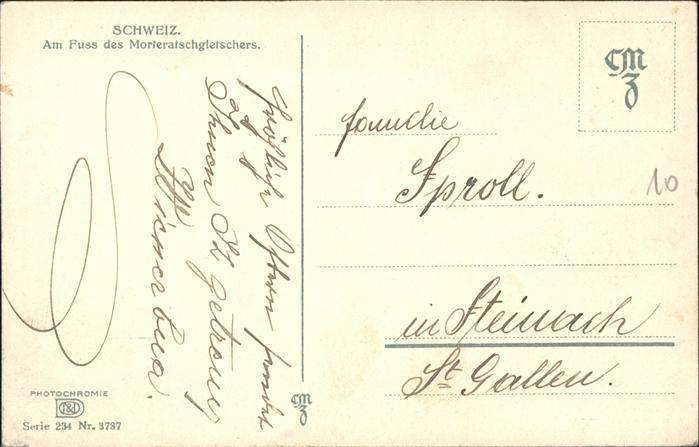 SCHWEIZ.
Am Fuss des Morteratschgletschers.
Fröhliche Ostern sendet
Ihnen
familie
Sproll.
in Steinach
St. Gallen.
10
CM
Z
PHOTOCHROMIE
Serie 234 Nr. 3787
CM
Z